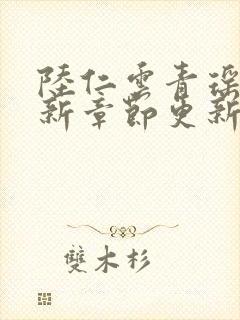 陸仁雲青瑶
新章節更新
雙木杉